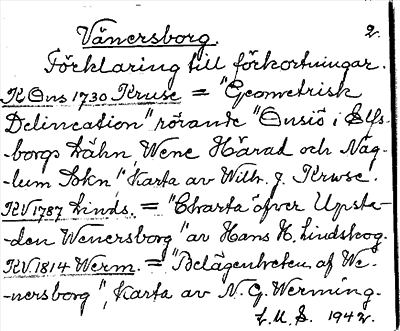 Vänersborg. 2.
Förklaring till förkortningar.
K Ons 1730 Kruse = "Geometrisk
Delineation" rörande "Onsiö i Elfs-
-borgs Lähn, Wene Härad och Nag-
-lum Sokn", Karta av Wilh. J. Kruse.
KV 1787 Linds. = "Charta öfver Upsta-
-den Wenersborg" av Hans H. Lindskog.
KV. 1814 Werm. = "Belägenheten af We-
-nersborg", Karta av N. G. Werming.
1942.